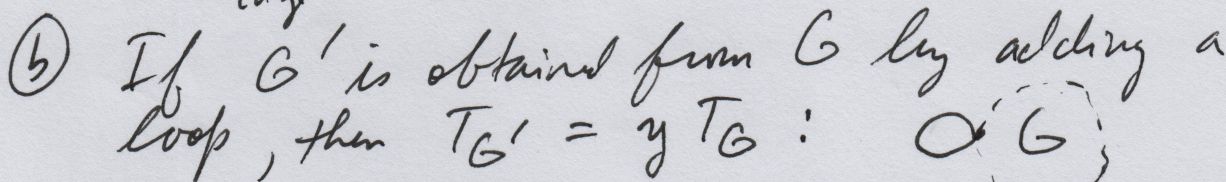 ⓑ If G' is obtained from G by adding a
loop, then T_G' = y T_G : G;